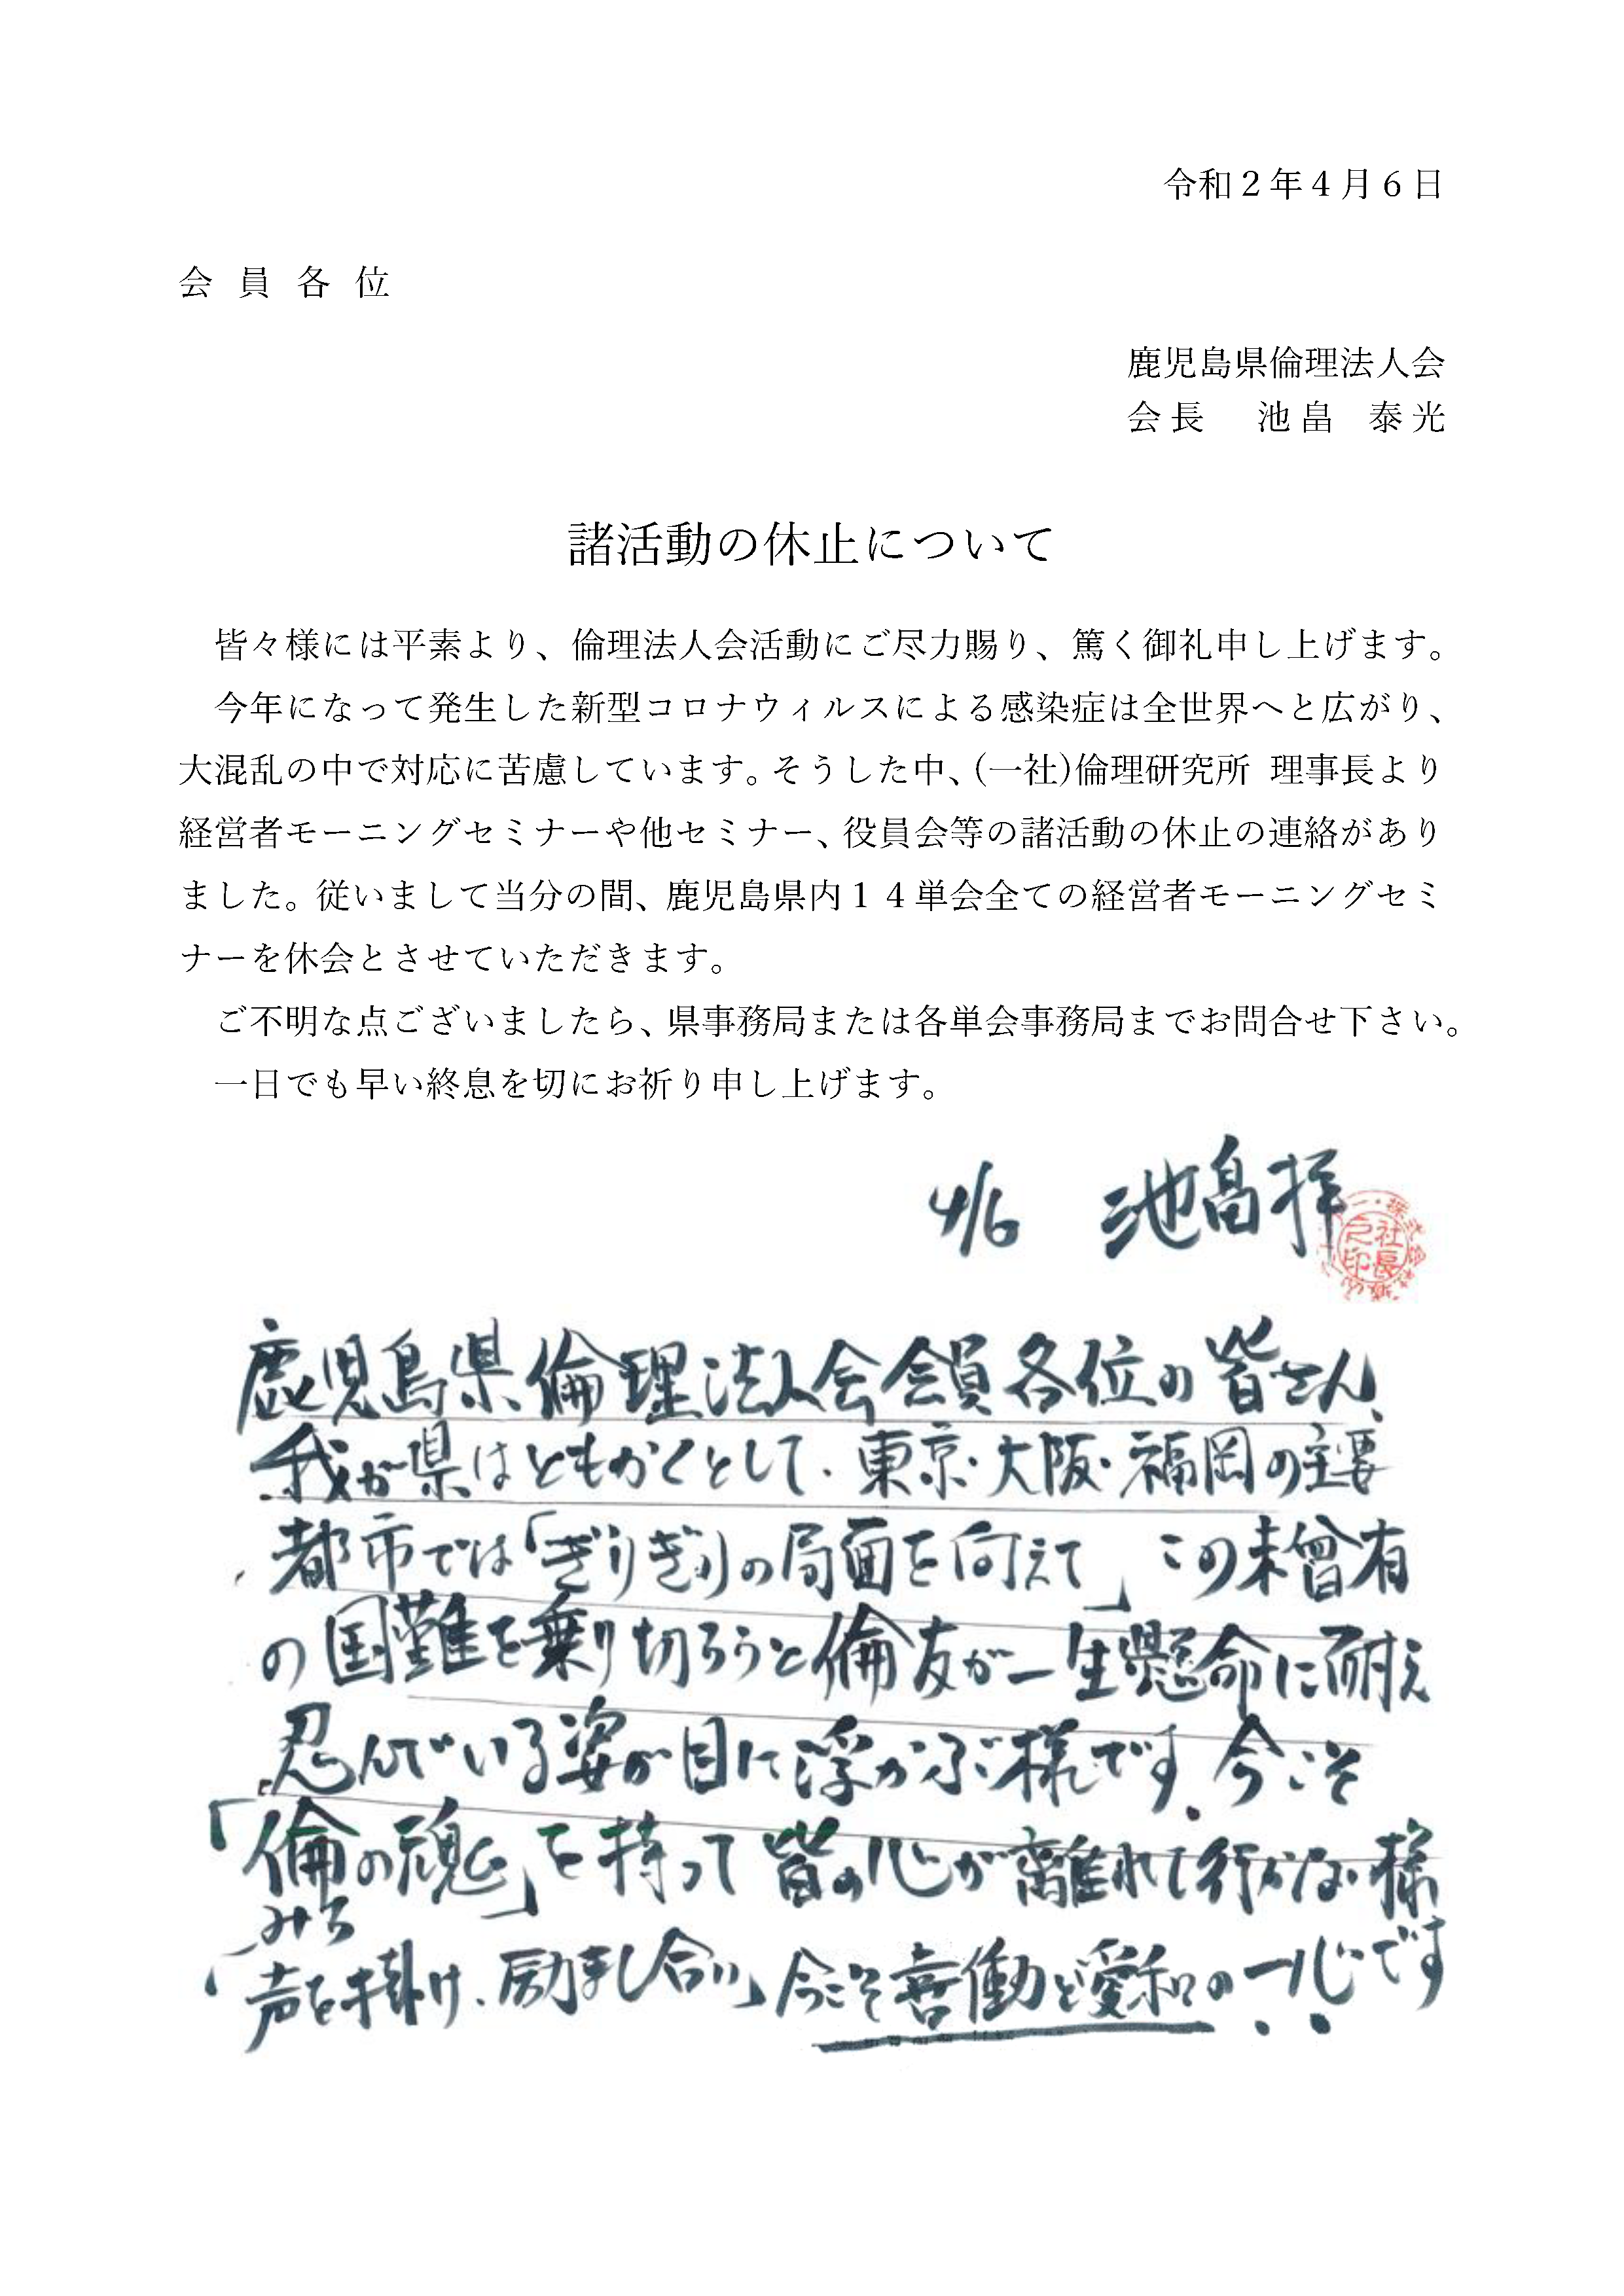 令和２年４月６日
会員各位
鹿児島県倫理法人会
会長　池畠　泰光
諸活動の休止について
皆々様には平素より、倫理法人会活動にご尽力賜り、篤く御礼申し上げます。
今年になって発生した新型コロナウィルスによる感染症は全世界へと広がり、
大混乱の中で対応に苦慮しています。そうした中、(一社)倫理研究所 理事長より
経営者モーニングセミナーや他セミナー、役員会等の諸活動の休止の連絡があり
ました。従いまして当分の間、鹿児島県内１４単会全ての経営者モーニングセミ
ナーを休会とさせていただきます。
ご不明な点ございましたら、県事務局または各単会事務局までお問合せ下さい。
一日でも早い終息を切にお祈り申し上げます。
4/6　池畠拝
社長之印
鹿児島県倫理法人会会員各位の皆さん、
我が県はともかくとして、東京・大阪・福岡の主要
都市では「ぎりぎりの局面を向えて」この未曾有
の国難を乗り切ろうと倫友が一生懸命に耐え
忍んでいる姿が目に浮かぶ様です。今こそ
「倫の魂」を持って皆の心が離れて行かない様
みち
「声を掛け、励まし合い」今こそ喜働と愛和の一心です